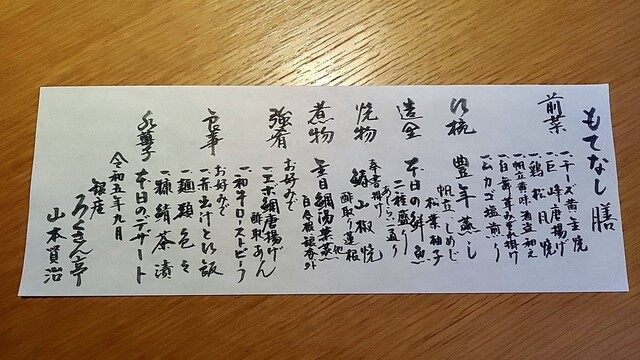 もてなし膳
前菜
一、チーズ黄金焼
一、巨峰唐揚げ
一、鶏松風焼
一、帆立香味酒盗和え
一、白舞茸みぞれ掛け
一、ムカゴ塩煎り
沢椀
豊年蒸し
帆立 しめじ
松葉柚子
造里
本日の鮮魚
二種盛り
あしらい一通り
焼物
奉書掛け
鰆山椒焼
酢取り蓮根
煮物
甘鯛陽葉蒸
百合根銀杏
強肴
お好みで
一、エボ鯛唐揚げ
酢取あん
一、和牛ローストビーフ
食事
お好みで
一、赤出汁と御飯
一、麺類色々
一、糠鯖茶漬
水菓子
本日のデザート
令和五年九月
銀座
ろくさん亭
山本貢治